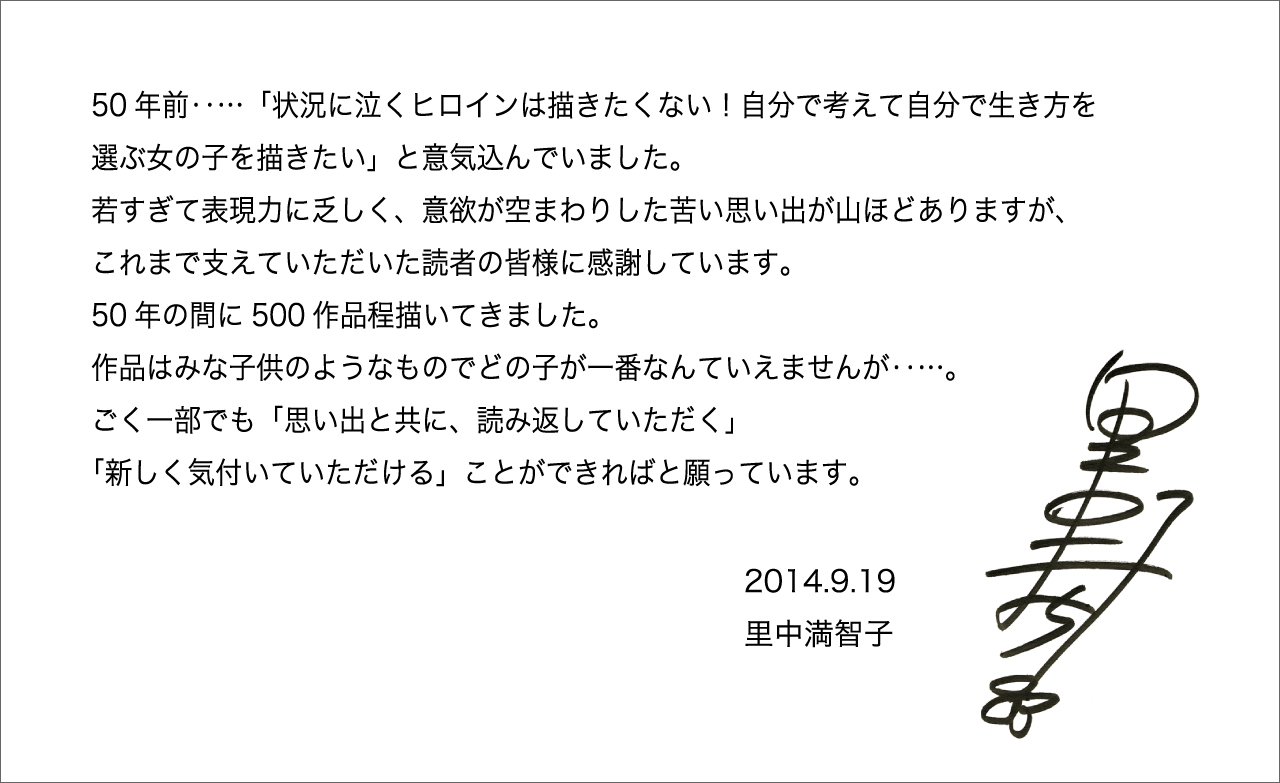 50年前‥…「状況に泣くヒロインは描きたくない！自分で考えて自分で生き方を
選ぶ女の子を描きたい」と意気込んでいました。
若すぎて表現力に乏しく、意欲が空まわりした苦い思い出が山ほどありますが、
これまで支えていただいた読者の皆様に感謝しています。
50年の間に500作品程描いてきました。
作品はみな子供のようなものでどの子が一番なんていえませんが‥…。
ごく一部でも「思い出と共に、読み返していただく」
「新しく気付いていただける」ことができればと願っています。
2014.9.19
里中満智子